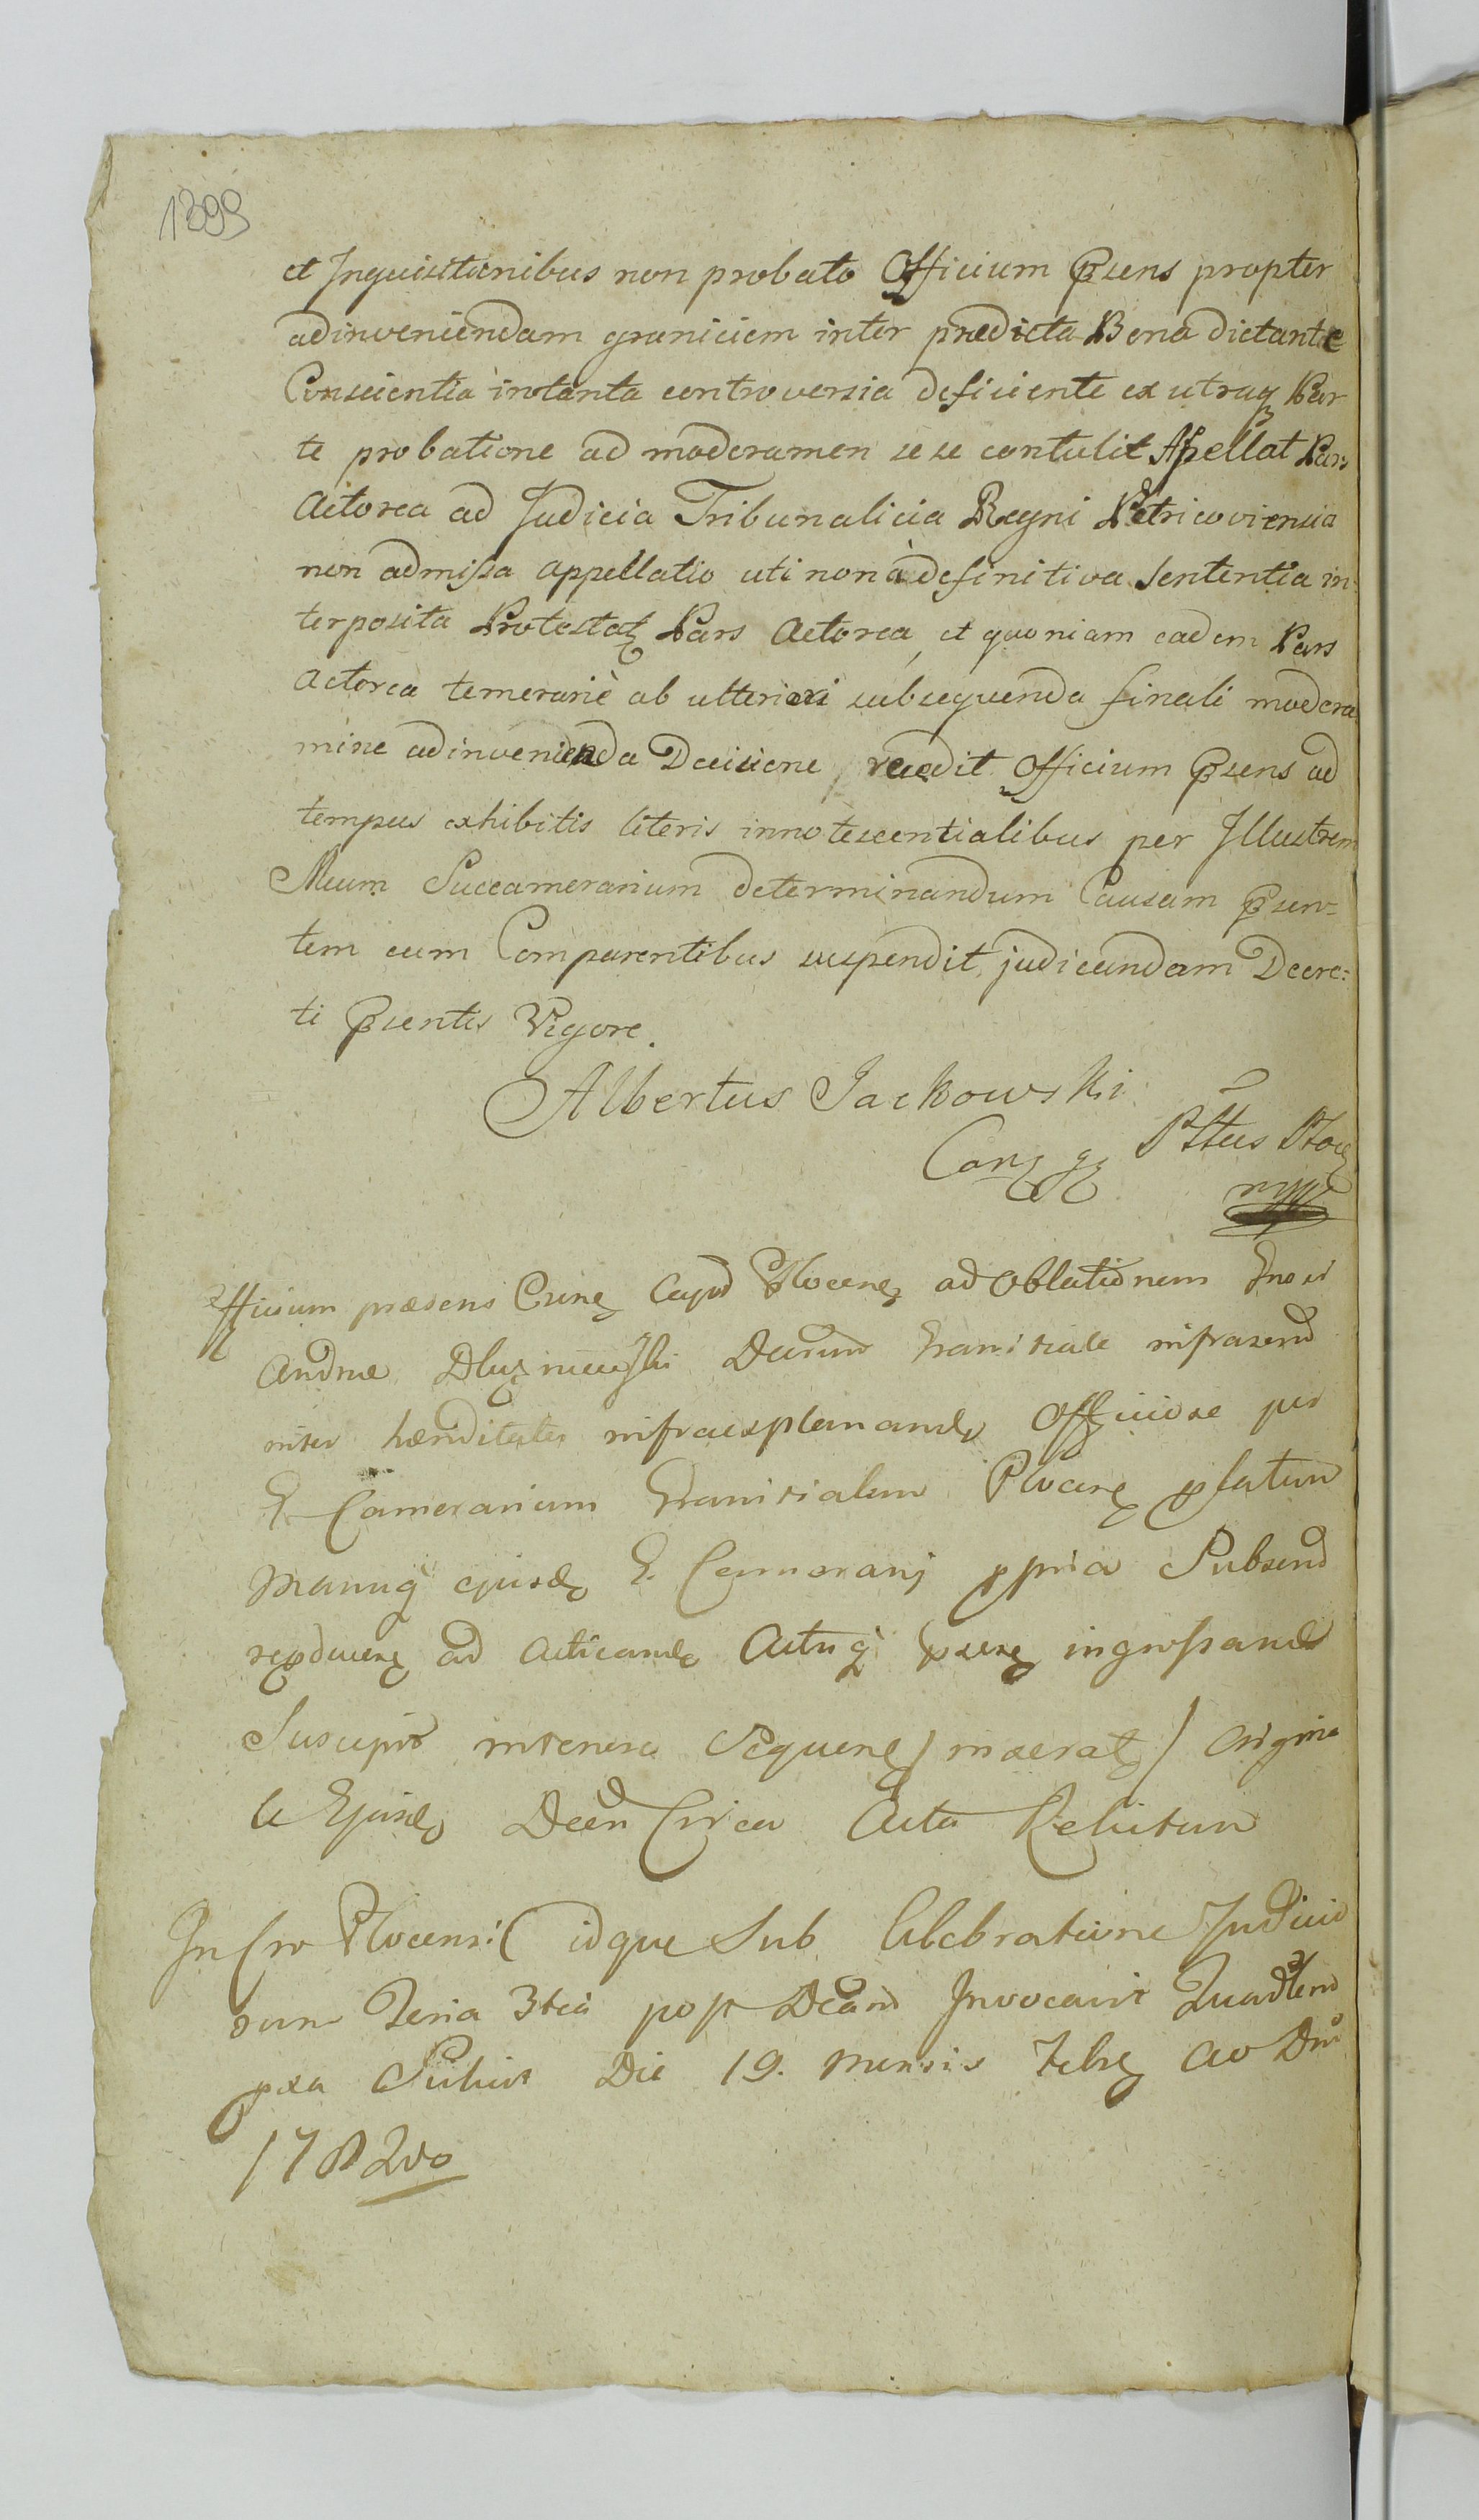 1399
et Inquisitionibus non probato Officium Psens propter
adinveniendam graniciem inter predicta Bona dictante
Conscientia in tanta controversia deficiente ex utraq Par
te probatione ad moderamen sese contulit Apellat Pars
Actorea ad Judicia Tribunalicia Regni Petricoviensia
non admissa appellatio uti non à definitiva Sententia in=
terposita Protestat Pars Actorea, et quoniam eadem Pars
Actorea temerariè ab ulteriori subsequenda finali modera
mine adinvenienda Decisione, recedit Officium Psens ad
tempus exhibitis literis innotescentialibus per Illustrem
Meum Succamerarium determinandum Causam Psen=
tem cum Comparentibus suspendit, judicandam Decre=
ti Psentis Vigore.
Albertus Jackowski
Camz PStus Ploc
mpp
Officium præsens Capit Plocens ad Oblationem Gnosi
Andreæ Decretum Granitiale infrascrip
inter hæreditates infraexplanand Officiose per
G. Camerarium Granitialem Plocens platum
Manuq ejusd G. Camerarij ppria Subscrip
reproducens ad Acticand Actuq psens ingrossand
Suscepit intenore Sequens / inserat / Origina
le Ejusd Decr Circa Acta Relictum
In Cro Plocensi (idque Sub Celebratione Judicio
rum Feria 3tia post Dcam Invocavit Quadrag
pxa Die 19. Mensis Febr Ao Dni
1782do